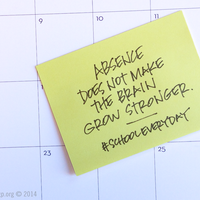 9
10
11
ABSENCE
DOES NOT MAKE
THE BRAIN
GROW STRONGER.
#SCHOOLEVERYDAY
23
25
.org © 2014